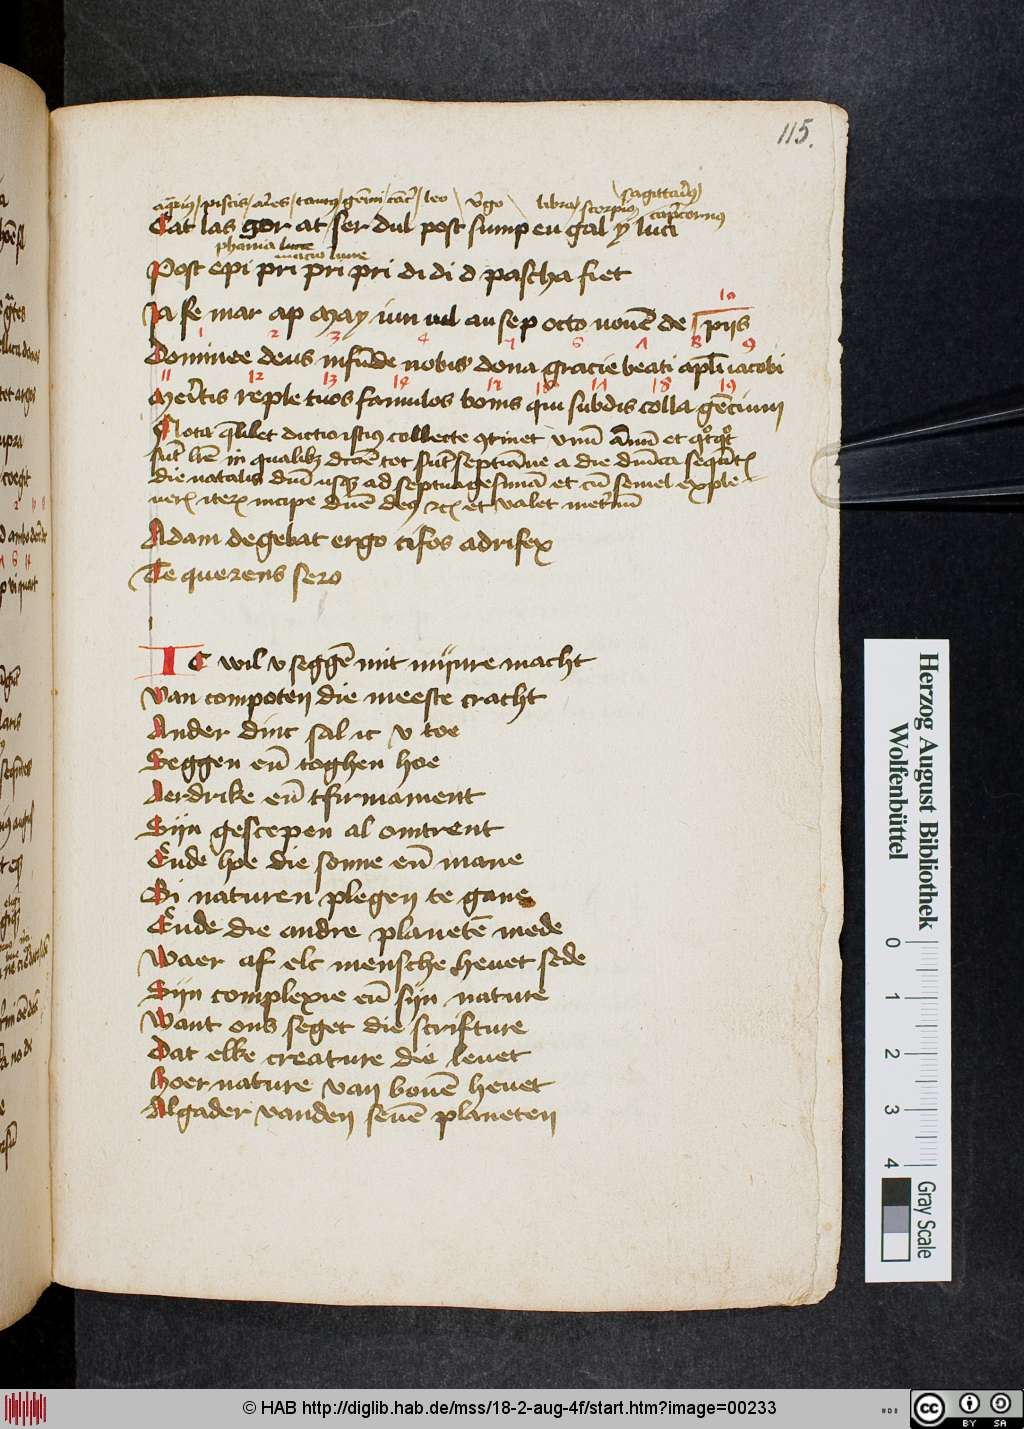 115.
aq̄rius / piscis / aries / taur9 / gemī / cācer / leo \ virgo \ libra / scorpius \ sagittarius / cap̄cornus
Cat las gor at ser dul post sump eu gal y luci
phania luce
marcio lune
Post epi pri pri pri di di d pascha fiet
10
Ja fe mar ap may iun iul au sep octo nouē de piis
1 2 3 4 5 6 7 8 9
Domine deus infūde nobis dona gracie beati ap̄li iacobi
11 12 13 14 15 16 17 18 19
Meritis reple tuos famulos bonis qui subdis colla gēcium
Nota q̄libet dictio istius collecte 9tinet vnū annū et
die natalis dn̄i usq3 ad septuagesimā et cū semel exple-
incipe dn̄e et valet metrum
Adam degebat ergo cifos adrifex
Te querens sero
IC wil v seggē mit mijnre macht
Van compoten die meeste cracht
Ander dinc sal ic v toe
Seggen eñ toghen hoe
Aerdrike eñ tfirmament
Sijn gescepen al omtrent
Ende hoe die sonne eñ mane
Bi naturen plegen te gane
Ende die andre planetē mede
Waer af elc mensche heuet sede
Sijn complexie eñ sijn nature
Want ons seget die scrifture
Dat elke creature die leuet
Hoer nature van bouē heuet
Algader vanden seuē planeten
Herzog August Bibliothek
Wolfenbüttel
0 1 2 3 4
Gray Scale
© HAB http://diglib.hab.de/mss/18-2-aug-4f/start.htm?image=00233
cc BY SA